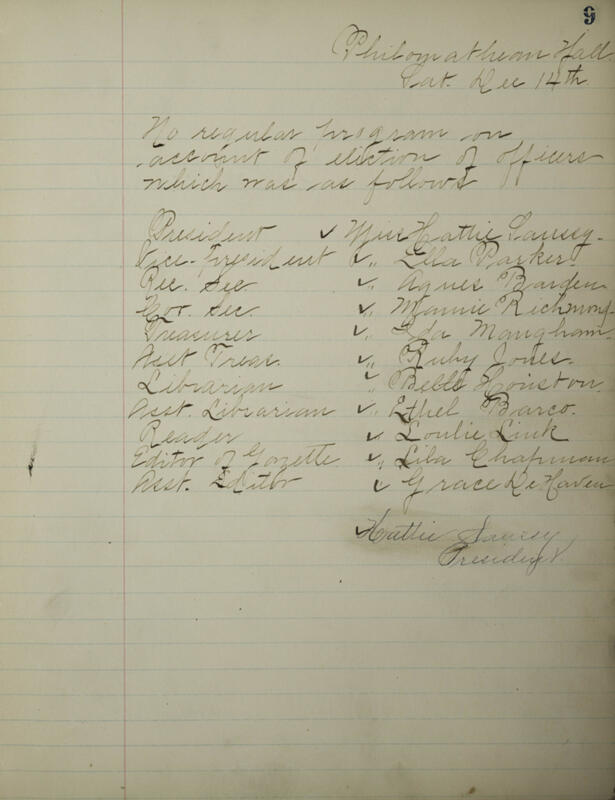 9
Philomathean Hall
Sat. Dec 14th
No regular program on
account of election of officers
which was as follows
President ✓ Miss Hattie Saussy.
Vice-president ✓ " Ella Parker.
Rec. Sec ✓ " Agnes Barden
Cor. Sec. ✓ " Mamie Richmond.
Treasurer ✓ " Ida Mangham.
Asst Treas. ✓ " Ruby Jones.
Librarian ✓ " Belle Houston.
Asst. Librarian ✓ " Ethel Barco.
Reader ✓ " Loulie Link
Editor of Gazette ✓ " Liba Chapman
Asst. Editor ✓ " Grace DeHaven
✓ Hattie Saussy
President.